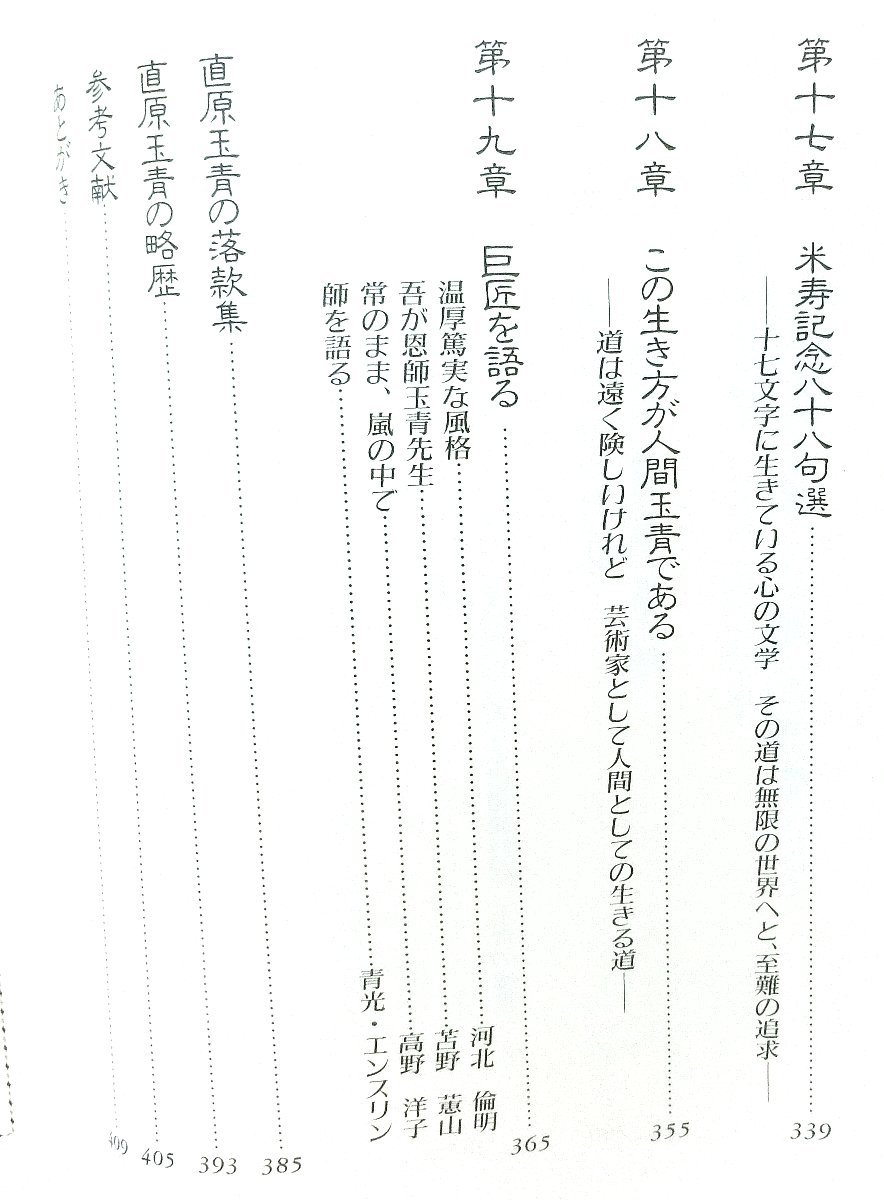 第十七章 米寿記念八十八句選……339
――十七文字に生きている心の文学 その道は無限の世界へと、至難の追求――
第十八章 この生き方が人間玉青である……355
――道は遠く険しいけれど 芸術家として人間としての生きる道――
第十九章 巨匠を語る……365
温厚篤実な風格……河北 倫明
吾が恩師玉青先生……苫野 蕙山
常のまま、嵐の中で……高野 洋子
師を語る……青光・エンスリン
直原玉青の落款集……385
直原玉青の略歴……393
参考文献……405
あとがき……409